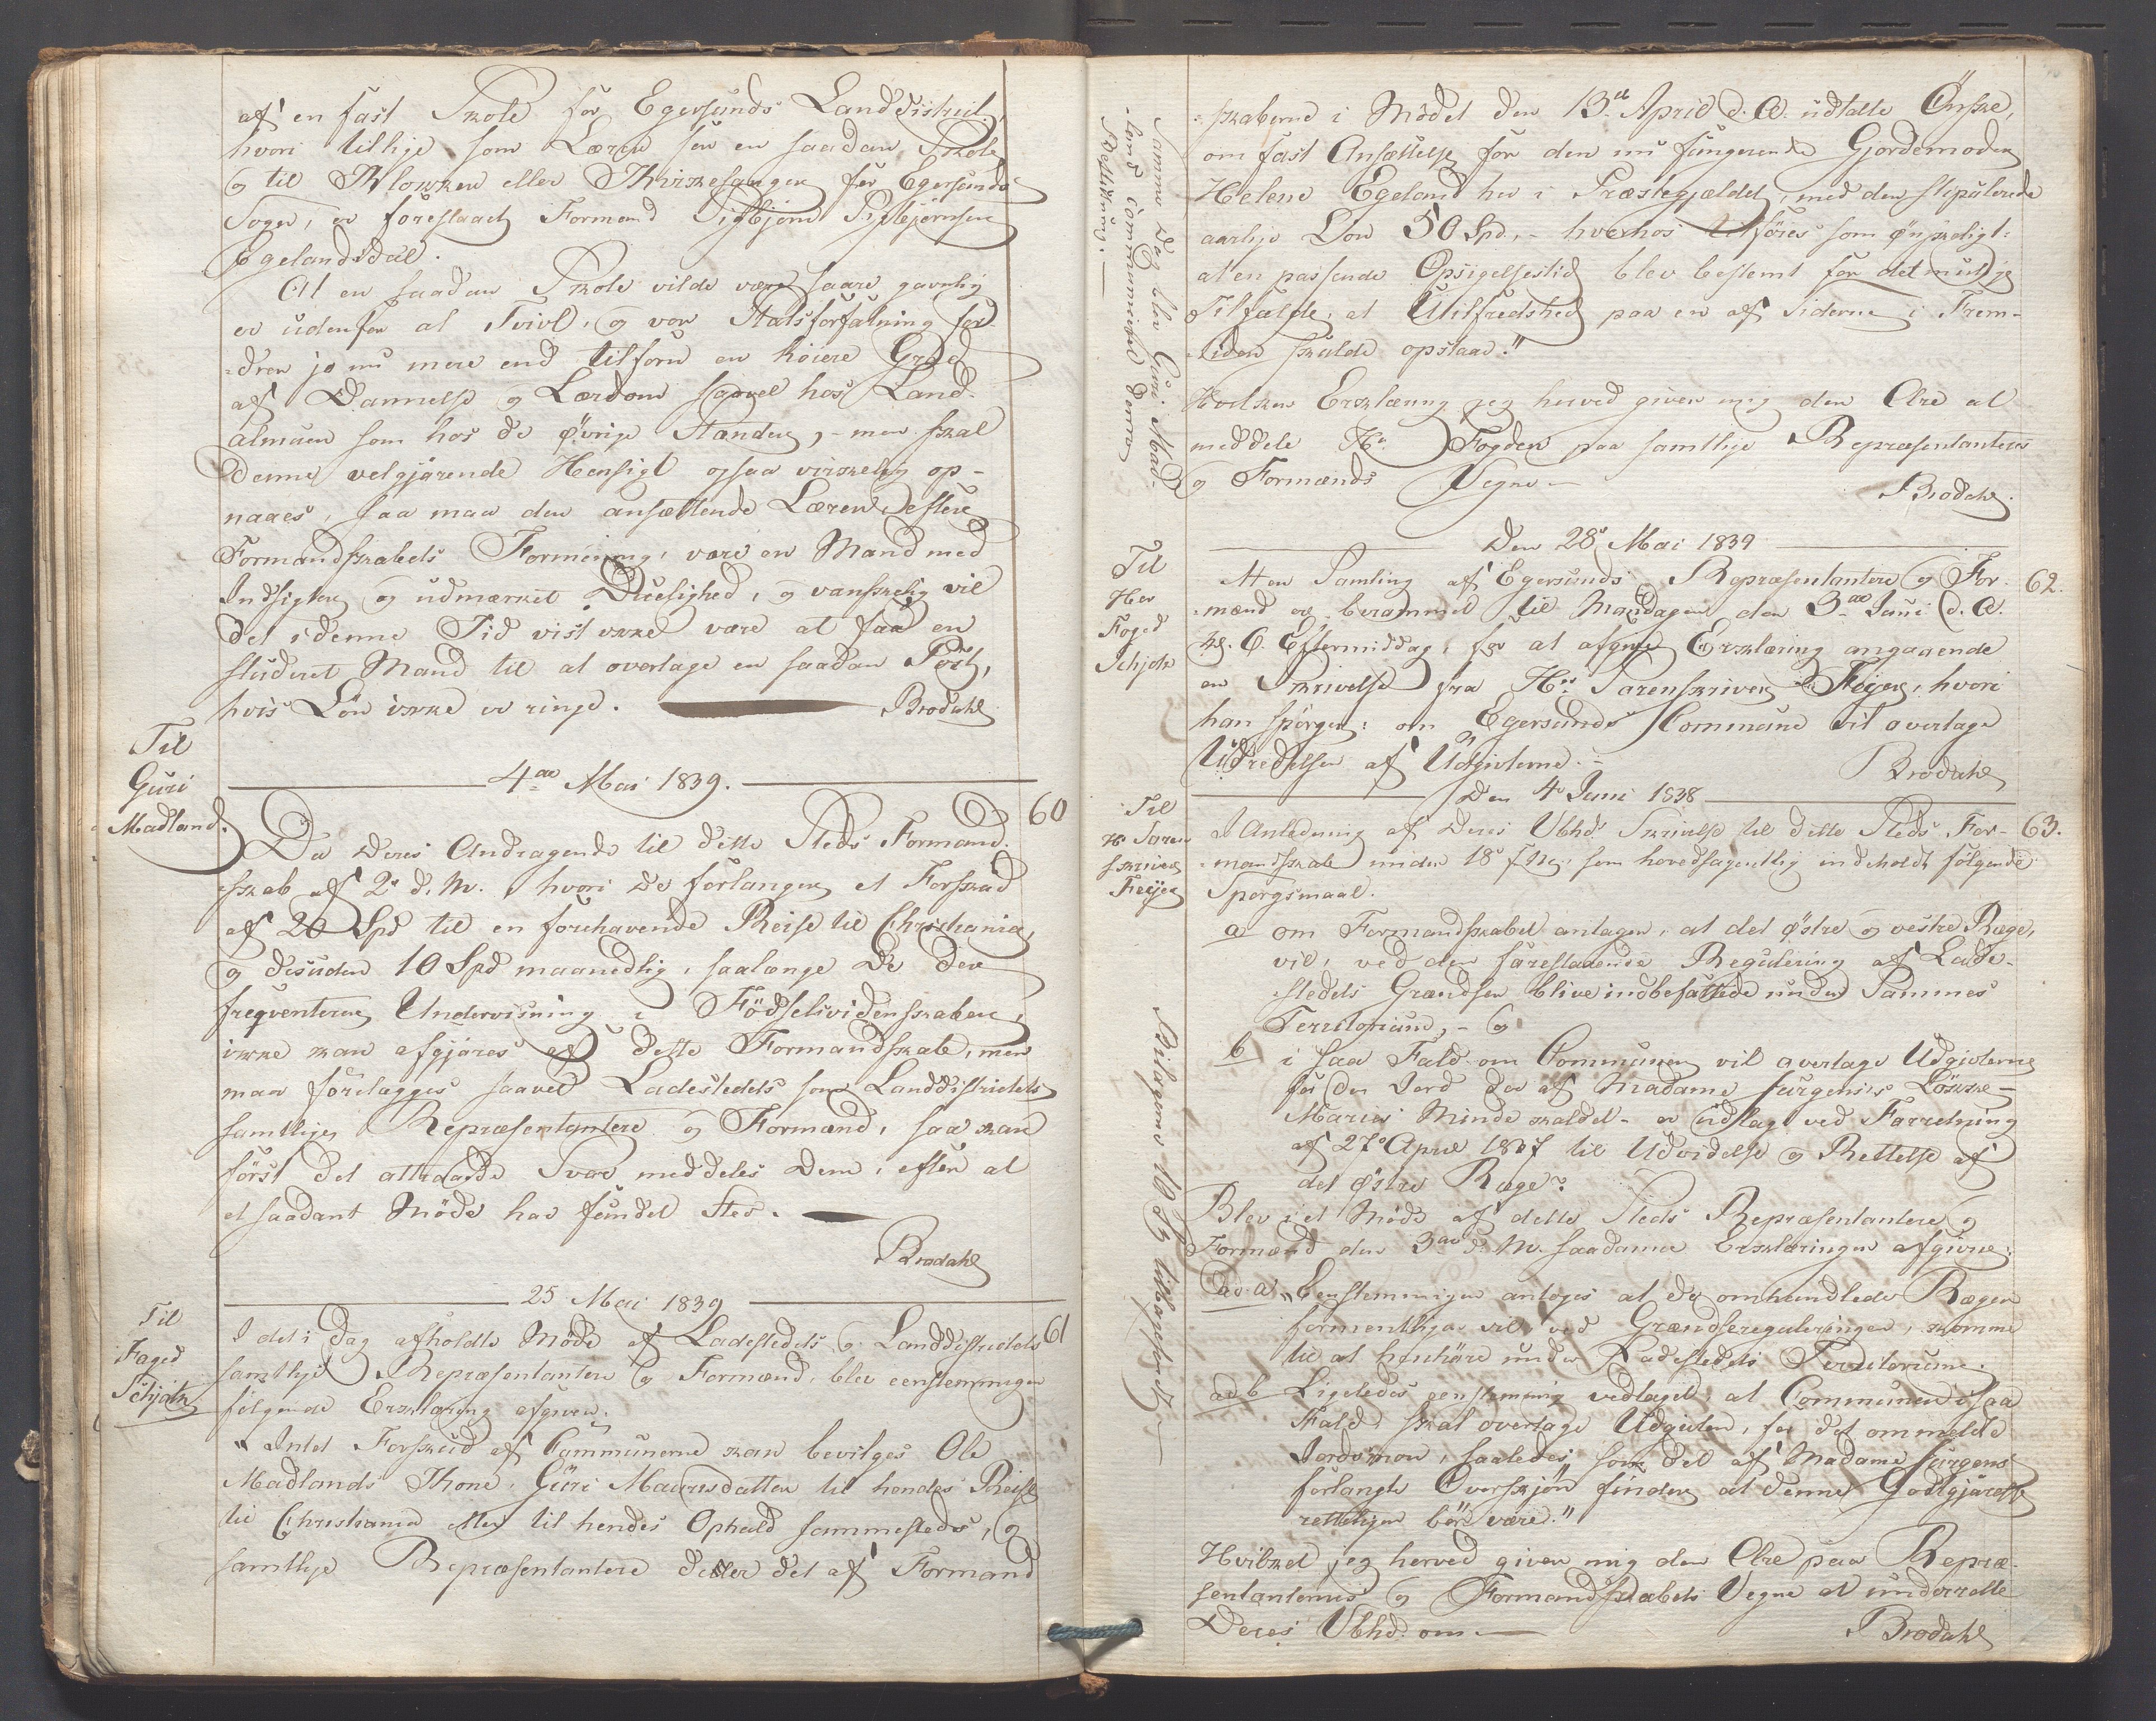 af en fast Skole for Egersunds Landdistrict,
hvori tillige som Lærer for en saadan Skole
og til Klokker eller Kirkesanger for Egersunds
Sogn, er foreslaaet Formand Sigbjørn Sigbjørnsen
Egelandsdal.
At en saadan Skole vilde være saare gavnlig
er udenfor al Tvivl, og vor Statsforfatning for-
=drer jo nu mere end tilforn en høiere Grad
af Dannelse og Lærdom saavel hos Land-
almuen som hos de øvrige Stænder, - men skal
denne velgjørende Hensigt ogsaa virkelig op-
naaes, saa maa den ansættende Lærer, efter
Formandskabets Formening, være en Mand med
Indsigter og udmærket Duelighed, og vanskelig vil
det i denne Tid vist ikke være at faae en
studeret Mand til at overtage en saadan Post,
hvis Løn ikke er ringe. Brodahl
Til
Guri
Madland.
4de Mai 1839.
60
Da Deres Andragende til dette Steds Formand-
=skab af 2de d. M. hvori De forlanger et Forskud
af 20 Spd til en forehavende Reise til Christiania,
og desuden 10 Spd maanedlig, saalænge De der
freqventerer Undervisning i Fødselsvidenskaben,
ikke kan afgjøres af dette Formandskab, men
maa forelægges saavel Ladestedets som Landdistrictets
samtlige Repræsentantere og Formænd, saa kan
først det attraaede Svar meddeles Dem, efter at
et saadant Møde har fundet Sted.
Brodahl
Til
Foged
Schjøtz
25 Mai 1839
61
I det i Dag afholdte Møde af Ladestedets og Landdistrictets
samtlige Repræsentanter og Formænd, blev eenstemmigen
følgende Erklæring afgiven:
"Intet Forskud af Communerne kan bevilges Ole
Madlands Kone, Guri Mauritsdatter til hendes Reise
til Christiania eller til hendes Ophold sammesteds, og
samtlige Repræsentantere deeler det af Formand
Samme Dag blev Guri Mad-
-land communiceret denne
Beslutning.
=skaberne i Mødet den 13de April d. A. udtalte Ønske,
om fast Ansættelse for den nu fungerende Gjordemoder
Helene Egeland her i Præstegjeldet, med den stipulerede
aarlige Løn 50 Spd, - hvorhos tilføies som ønskeligt:
at en passende Opsigelsestid blev bestemt for det mulige
Tilfælde, at Utilfredshed paa en af Siderne i Frem-
=tiden skulde opstaae."
Hvilken Erklæring jeg herved giver mig den Ære at
meddele Hr. Fogden paa samtlige Repræsentanters
og Formænds Vegne
Brodahl.
Til
Her
Foged
Schjøtz
Den 28de Mai 1839
62.
En Samling af Egersunds Repræsentantere og For-
=mænd er berammet til Mandagen den 3de Juni d. A.
Kl. 6 Eftermiddag, for at afgive Erklæring angaaende
en Skrivelse fra Hr. Sorenskriver Feyer, hvori
han spørger: om Egersunds Commune vil overtage
Udredelsen af Udgivterne.
Brodahl
Til
Hr Soren
skriver
Feyer
Den 4de Juni 1838
63.
I Anledning af Deres Vbhds Skrivelse til dette Steds For-
=mandskab under 18de f. M., som hovedsagentlig indeholdt følgende
Spørgsmaal.
a om Formandskabet antager, at det østre og vestre Ræge,
vid, ved den forestaaende Regulering af Lade-
stedets Grændser blive indbefattede under Sammes
Territorium, - og
b i saa Fald om Communen vil overtage Udgivterne
for den Jord der af Madame Jürgens's Løkke -
Maries Minde kaldet - er udlagt ved Forretning
af 27de April 1837 til Udvidelse og Rettelse af
det østre Ræge?
Blev i et Møde af dette Steds Repræsentantere og
Formænd den 3de d. M. saadanne Erklæringer afgivne:
ad. a) "Eenstemmigen antoges at de omhandlede Ræger
formentligen vil, ved Grændsereguleringen, komme
til at henhøre under Ladestedets Territorium.
ad b Ligeledes eenstemmig vedtaget, at Communen i saa
Fald, skal overtage Udgivten, for det ommeldte
Jordsmon, saaledes, som det af Madame Jürgens
forlangte Overskjøn finder at denne Godtgjørelse
retteligen bør være."
Hvilket jeg herved giver mig den Ære paa Repræ-
sentanternes og Formandskabets Vegne at underrette
Deres Vbhd. om.
Brodahl